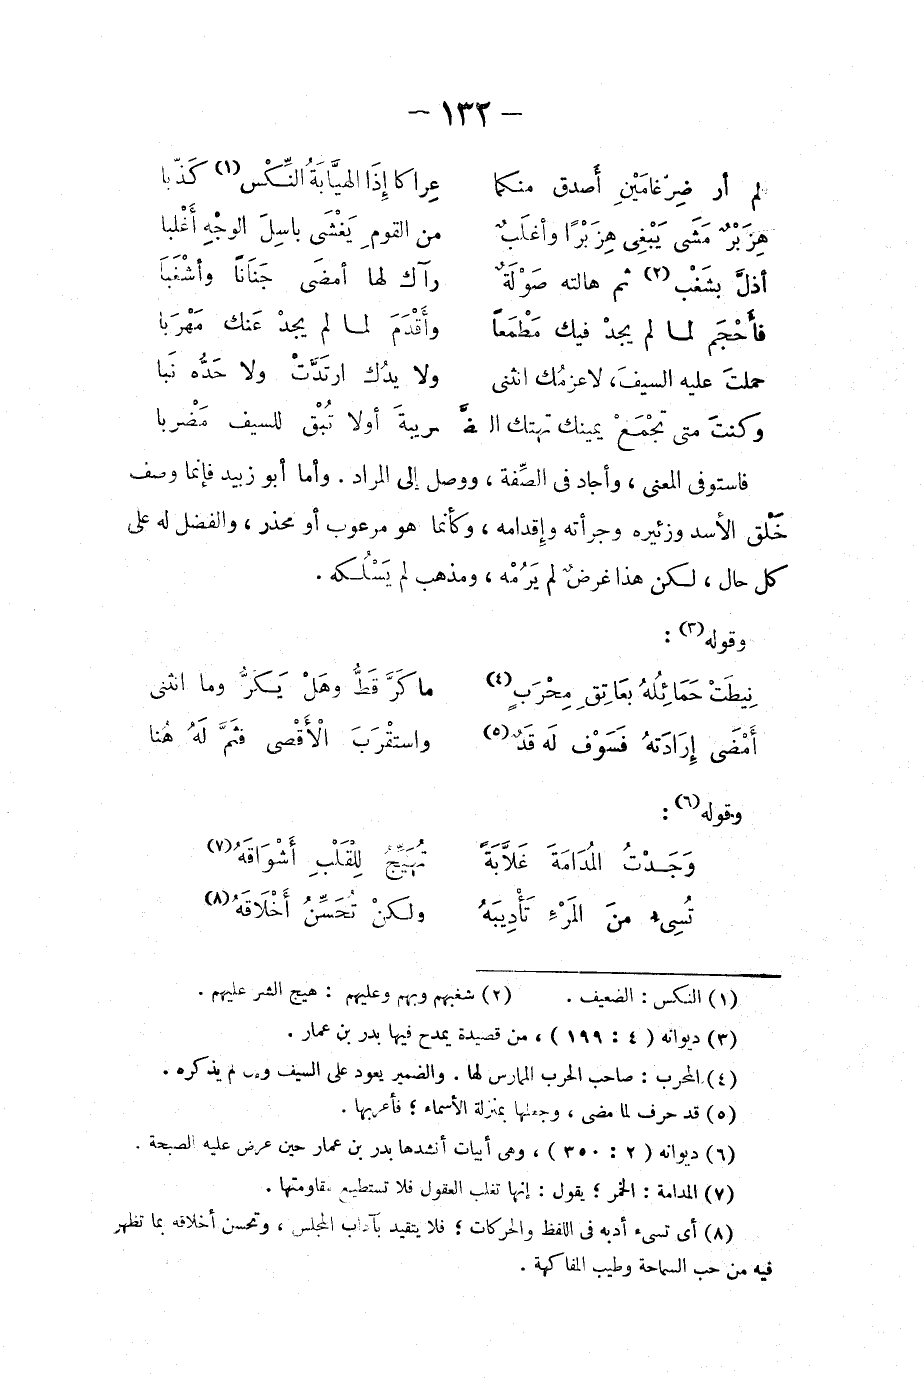 — ١٣٢ —
لم أر ضِرْغامَيْنِ أَصدق منكما    عِراكا إِذَا الهيَّابَةُ النِّكْس(١) كَذَّبا
هِزَبْرٌ مَشَى يَبْغِى هِزَبْرًا وأغلَبٌ    من القومِ يَغْشَى باسِلَ الوجْهِ أَغْلبا
أدلَّ بشَغْب(٢) ثم هالته صَوْلَةٌ    رآك لها أمضَى جَنَاناً وأشْغَبَا
فأَحْجَم لمـا لم يجدْ فيك مَطْمَعاً    وأَقْدَمَ لمـا لم يجدْ عَنك مَهْرَبا
حملتَ عليه السيفَ، لاعزمُك انثنى    ولا يدُك ارتَدَّتْ ولا حَدُّه نَبا
وكنتَ متى تجْمَعْ يمينك تهتك الـ    ـضَّريبةَ أولا تُبْق للسيف مَضْربا
فاستوفى المعنى ، وأجاد فى الصِّفة ، ووصل إلى المراد . وأما أبو زبيد فإنما وصف
خَلْق الأسد وزئيره وجرأته وإقدامه ، وكأنما هو مرعوب أو محذر ، والفضل له على
كل حال ، لـكن هذا غرضٌ لم يَرُمْه ، ومذهب لم يَسْلُـكه .
وقوله(٣) :
نِيطَتْ حَمَائِلُهُ بعَاتِقِ مِحْرَبٍ(٤)    ماكَرَّ قَطُّ وهَلْ يَـكرُّ وما انثنى
أَمْضَى إِرَادَتهُ فَسَوْف لَه قَدٌ(٥)    واستقْرَبَ الْأَقْصى فَثَمَّ لَهُ هُنا
وقوله(٦) :
وَجَـدْتُ المُدَامَةَ غَلاَّبَةً    تُهَيِّجُ لِلْقَلْبِ أَشْوَاقَهُ(٧)
تُسِىء منَ المَرْءِ تَأْدِيبَهُ    ولـكنْ تُحَسِّنُ أَخْلَاقَهُ(٨)
(١) النكس : الضعيف .    (٢) شغبهم وبهم وعليهم : هيج الشر عليهم .
(٣) ديوانه ( ٤ : ١٩٩ ) ، من قصيدة يمدح فيها بدر بن عمار .
(٤) المحرب : صاحب الحرب الممارس لها . والضمير يعود على السيف و لم يذكره .
(٥) قد حرف لما مضى ، وجعلها بمنزلة الأسماء ؛ فأعربها .
(٦) ديوانه ( ٢ : ٣٥٠ ) ، وهى أبيات أنشدها بدر بن عمار حين عرض عليه الصبحة .
(٧) المدامة : الخمر ؛ يقول : إنها تغلب العقول فلا تستطيع مقاومتها .
(٨) أى تسىء أدبه فى اللفظ والحركات ؛ فلا يتقيد بآداب المجلس ، وتحسن أخلاقه بما تظهر
فيه من حب السماحة وطيب المفاكهة .